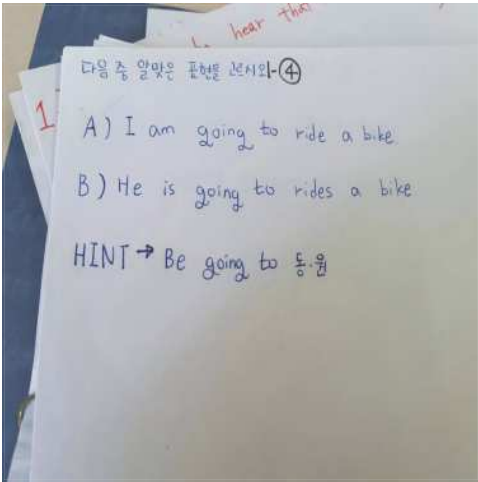 hear that
1
다음 중 알맞은 표현을 고르시오-④
A) I am going to ride a bike.
B) He is going to rides a bike.
HINT → Be going to 동.원